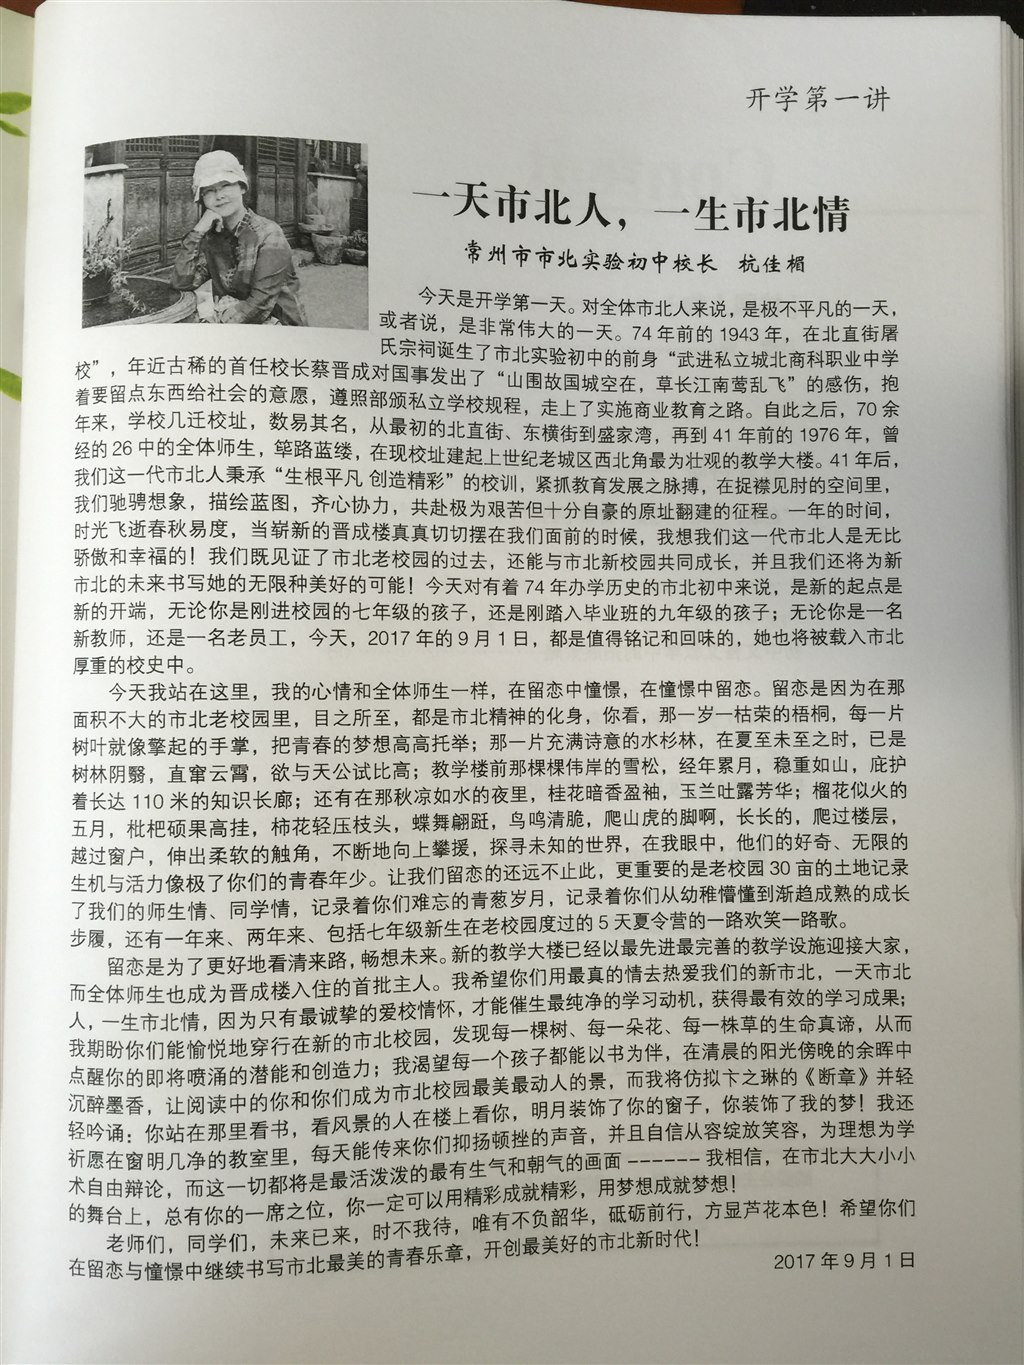 开学第一讲
一天市北人，一生市北情
常州市市北实验初中校长 杭佳楣
今天是开学第一天。对全体市北人来说，是极不平凡的一天，
或者说，是非常伟大的一天。74 年前的 1943 年，在北直街屠
氏宗祠诞生了市北实验初中的前身“武进私立城北商科职业中学
校”，年近古稀的首任校长蔡晋成对国事发出了“山围故国城空在，草长江南莺乱飞”的感伤，抱
着要留点东西给社会的意愿，遵照部颁私立学校规程，走上了实施商业教育之路。自此之后，70 余
年来，学校几迁校址，数易其名，从最初的北直街、东横街到盛家湾，再到 41 年前的 1976 年，曾
经的 26 中的全体师生，筚路蓝缕，在现校址建起上世纪老城区西北角最为壮观的教学大楼。41 年后，
我们这一代市北人秉承“生根平凡 创造精彩”的校训，紧抓教育发展之脉搏，在捉襟见肘的空间里，
我们驰骋想象，描绘蓝图，齐心协力，共赴极为艰苦但十分自豪的原址翻建的征程。一年的时间，
时光飞逝春秋易度，当崭新的晋成楼真真切切摆在我们面前的时候，我想我们这一代市北人是无比
骄傲和幸福的！我们既见证了市北老校园的过去，还能与市北新校园共同成长，并且我们还将为新
市北的未来书写她的无限种美好的可能！今天对有着 74 年办学历史的市北初中来说，是新的起点是
新的开端，无论你是刚进校园的七年级的孩子，还是刚踏入毕业班的九年级的孩子；无论你是一名
新教师，还是一名老员工，今天，2017 年的 9 月 1 日，都是值得铭记和回味的，她也将被载入市北
厚重的校史中。
今天我站在这里，我的心情和全体师生一样，在留恋中憧憬，在憧憬中留恋。留恋是因为在那
面积不大的市北老校园里，目之所至，都是市北精神的化身，你看，那一岁一枯荣的梧桐，每一片
树叶就像擎起的手掌，把青春的梦想高高托举；那一片充满诗意的水杉林，在夏至未至之时，已是
树林阴翳，直窜云霄，欲与天公试比高；教学楼前那棵棵伟岸的雪松，经年累月，稳重如山，庇护
着长达 110 米的知识长廊；还有在那秋凉如水的夜里，桂花暗香盈袖，玉兰吐露芳华；榴花似火的
五月，枇杷硕果高挂，柿花轻压枝头，蝶舞翩跹，鸟鸣清脆，爬山虎的脚啊，长长的，爬过楼层，
越过窗户，伸出柔软的触角，不断地向上攀援，探寻未知的世界，在我眼中，他们的好奇、无限的
生机与活力像极了你们的青春年少。让我们留恋的还远不止此，更重要的是老校园 30 亩的土地记录
了我们的师生情、同学情，记录着你们难忘的青葱岁月，记录着你们从幼稚懵懂到渐趋成熟的成长
步履，还有一年来、两年来、包括七年级新生在老校园度过的 5 天夏令营的一路欢笑一路歌。
留恋是为了更好地看清来路，畅想未来。新的教学大楼已经以最先进最完善的教学设施迎接大家，
而全体师生也成为晋成楼入住的首批主人。我希望你们用最真的情去热爱我们的新市北，一天市北
人，一生市北情，因为只有最诚挚的爱校情怀，才能催生最纯净的学习动机，获得最有效的学习成果；
我期盼你们能愉悦地穿行在新的市北校园，发现每一棵树、每一朵花、每一株草的生命真谛，从而
点醒你的即将喷涌的潜能和创造力；我渴望每一个孩子都能以书为伴，在清晨的阳光傍晚的余晖中
沉醉墨香，让阅读中的你和你们成为市北校园最美最动人的景，而我将仿拟卞之琳的《断章》并轻
轻吟诵：你站在那里看书，看风景的人在楼上看你，明月装饰了你的窗子，你装饰了我的梦！我还
祈愿在窗明几净的教室里，每天能传来你们抑扬顿挫的声音，并且自信从容绽放笑容，为理想为学
术自由辩论，而这一切都将是最活泼泼的最有生气和朝气的画面 ------ 我相信，在市北大大小小
的舞台上，总有你的一席之位，你一定可以用精彩成就精彩，用梦想成就梦想！
老师们，同学们，未来已来，时不我待，唯有不负韶华，砥砺前行，方显芦花本色！希望你们
在留恋与憧憬中继续书写市北最美的青春乐章，开创最美好的市北新时代！
2017 年 9 月 1 日